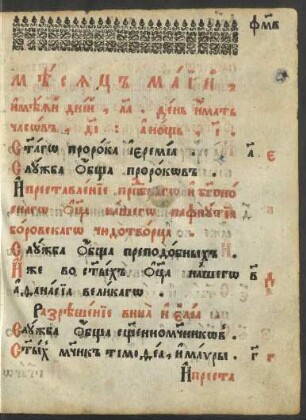 фм҃в
Мѣ́сѧцъ ма́їй,
и҆мѣ́ѧй днїй, ла҃. де́нь и҆́мать
часѡ́въ, д҃і: а҆ но́щь, і҃.
Ст҃а́гѡ проро́ка і҆ереме́и. а҃ є
Слꙋ́жба ѻ҆́бща проро́кѡвъ.
И҆ преставле́нїе прпⷣбнагѡ и҆ бг҃оно́
снагѡ ѻ҆ц҃а̀ на́шегѡ пафнꙋ́тїѧ
боровскагѡ чюдотво́рца
Слꙋ́жба ѻ҆́бща преподо́бныхъ.
И҆́же во ст҃ы́хъ ѻ҆ц҃а̀ на́шегѡ в҃
А҆ѳана́сїѧ вели́кагѡ.
Разрѣше́нїе вина̀ и҆ є҆ле́ѧ
Слꙋ́жба ѻ҆́бща сщ҃енномч҃никѡвъ.
Ст҃ы́хъ мч҃нкъ тимоѳе́а, и҆ ма́ѵры. г҃
И҆ преста